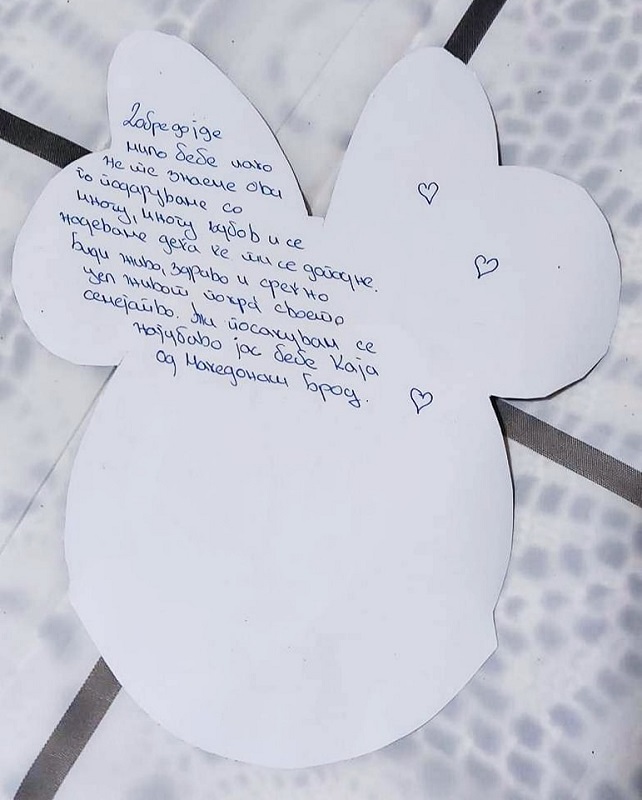 Добредојде
мило бебе иако
не те знаеме ова
ти подаруваме со
многу, многу љубов и се
надеваме дека ќе ти се допадне.
Биди живо, здраво и среќно
цел живот, покрај своето
семејство. Ти посакувам се
најубаво јас бебе Каја
од Македонски Брод.